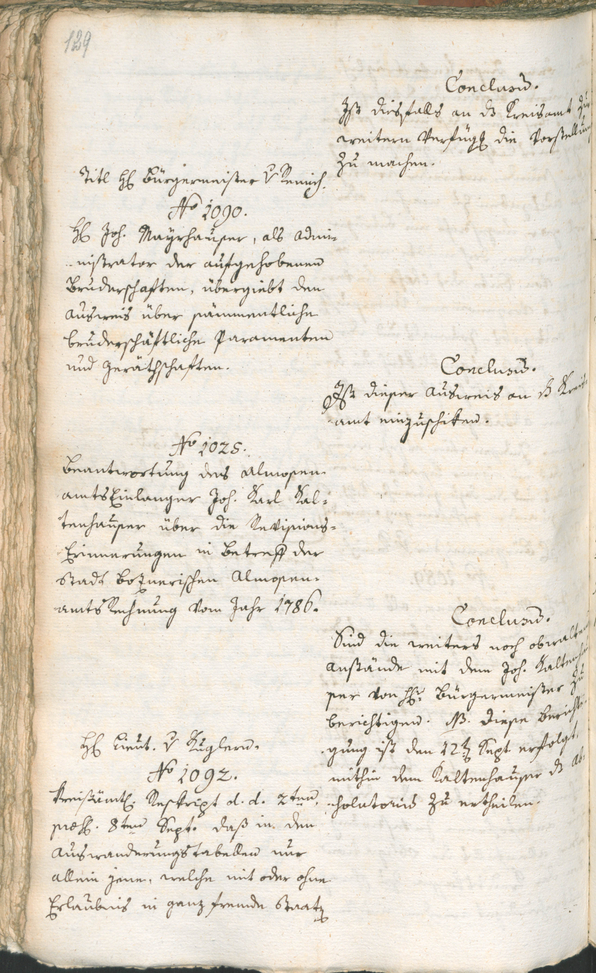 129
Conclusū.
Ist diesfalls an ds Kreisamt zu
weitern Verfügg die Vorstellung
zu machen.
Titl H. Bürgermeister v Remich.
No 1090.
H. Joh. Mayrhauser, als admi-
nistrator der aufgehobenen
Bruderschaften, übergiebt den
Ausweis über sämmentliche
bruderschäftliche Paramenten
und Geräthschaften.
Conclusū.
Ist dieser Ausweis an ds Kreis-
amt einzuschiken.
No 1028.
Beantwortung des Almosen-
amtsEinlanger Joh. Karl Kal-
tenhauser über die Revisions-
Erinnerungen in Betreff der
Stadt Botznerischen Almosen-
amtsRechnung vom Jahr 1786.
Conclusū.
Sind die weiters noch obwalten
Anstände mit dem Joh. Kaltenhau
ser von H. Bürgermeister zu
berichtigen. NB. diese Berichti-
gung ist den 12ten Sept erfolgt,
mithin dem Kaltenhauser ds Ab-
solutoriū zu ertheilen.
H. Lieut. v Kuglern.
No 1092.
Kreisämtl. Reskript d. d. 2ten,
præs. 8ten Sept. daß in den
Auswanderungstabellen nur
allein jene, welche mit oder ohne
Erlaubnis in ganz fremde Staatz